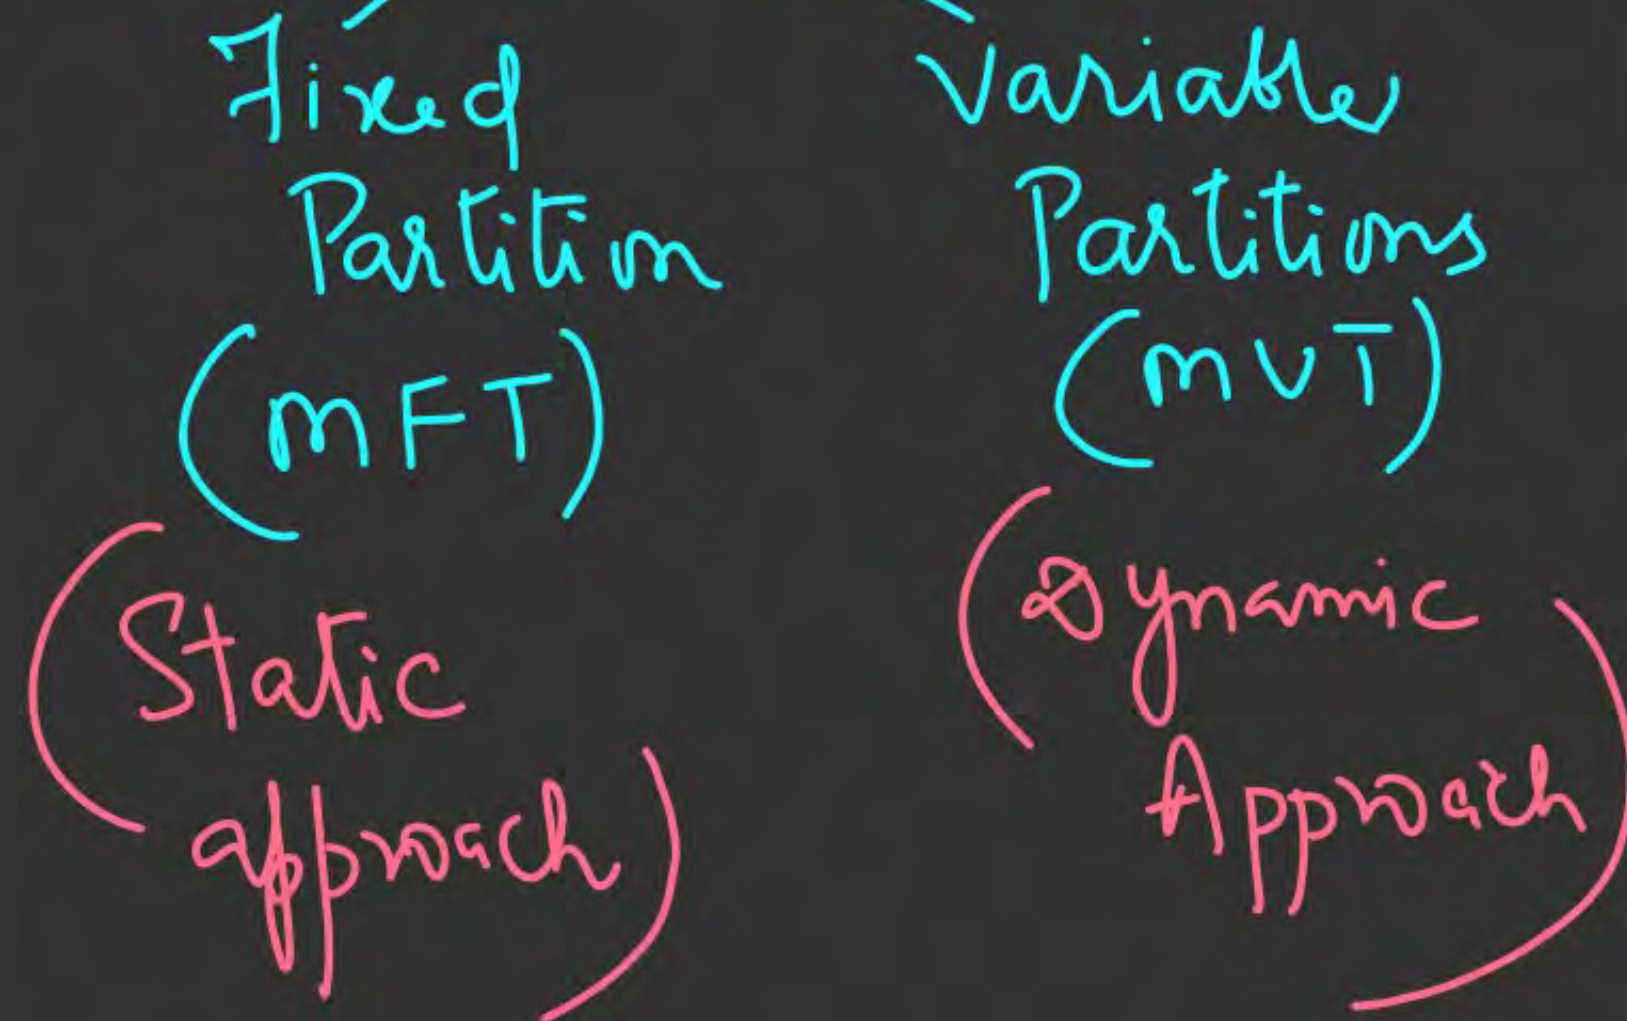 Fixed
Partition
(MFT)
(Static
approach)
Variable
Partitions
(MVT)
(Dynamic
Approach)